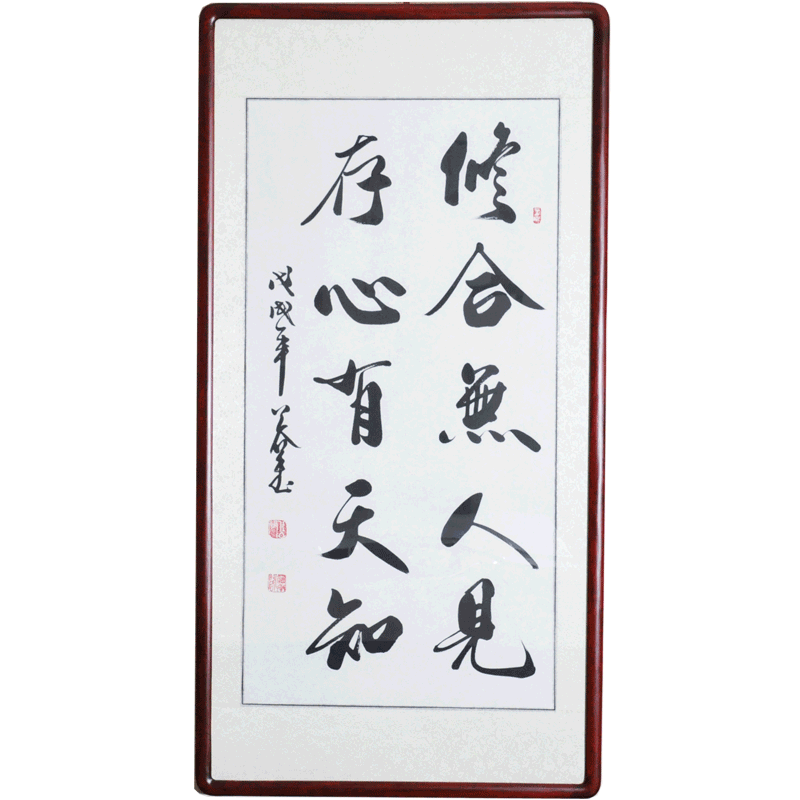 修合無人見
存心有天知
戊戌年